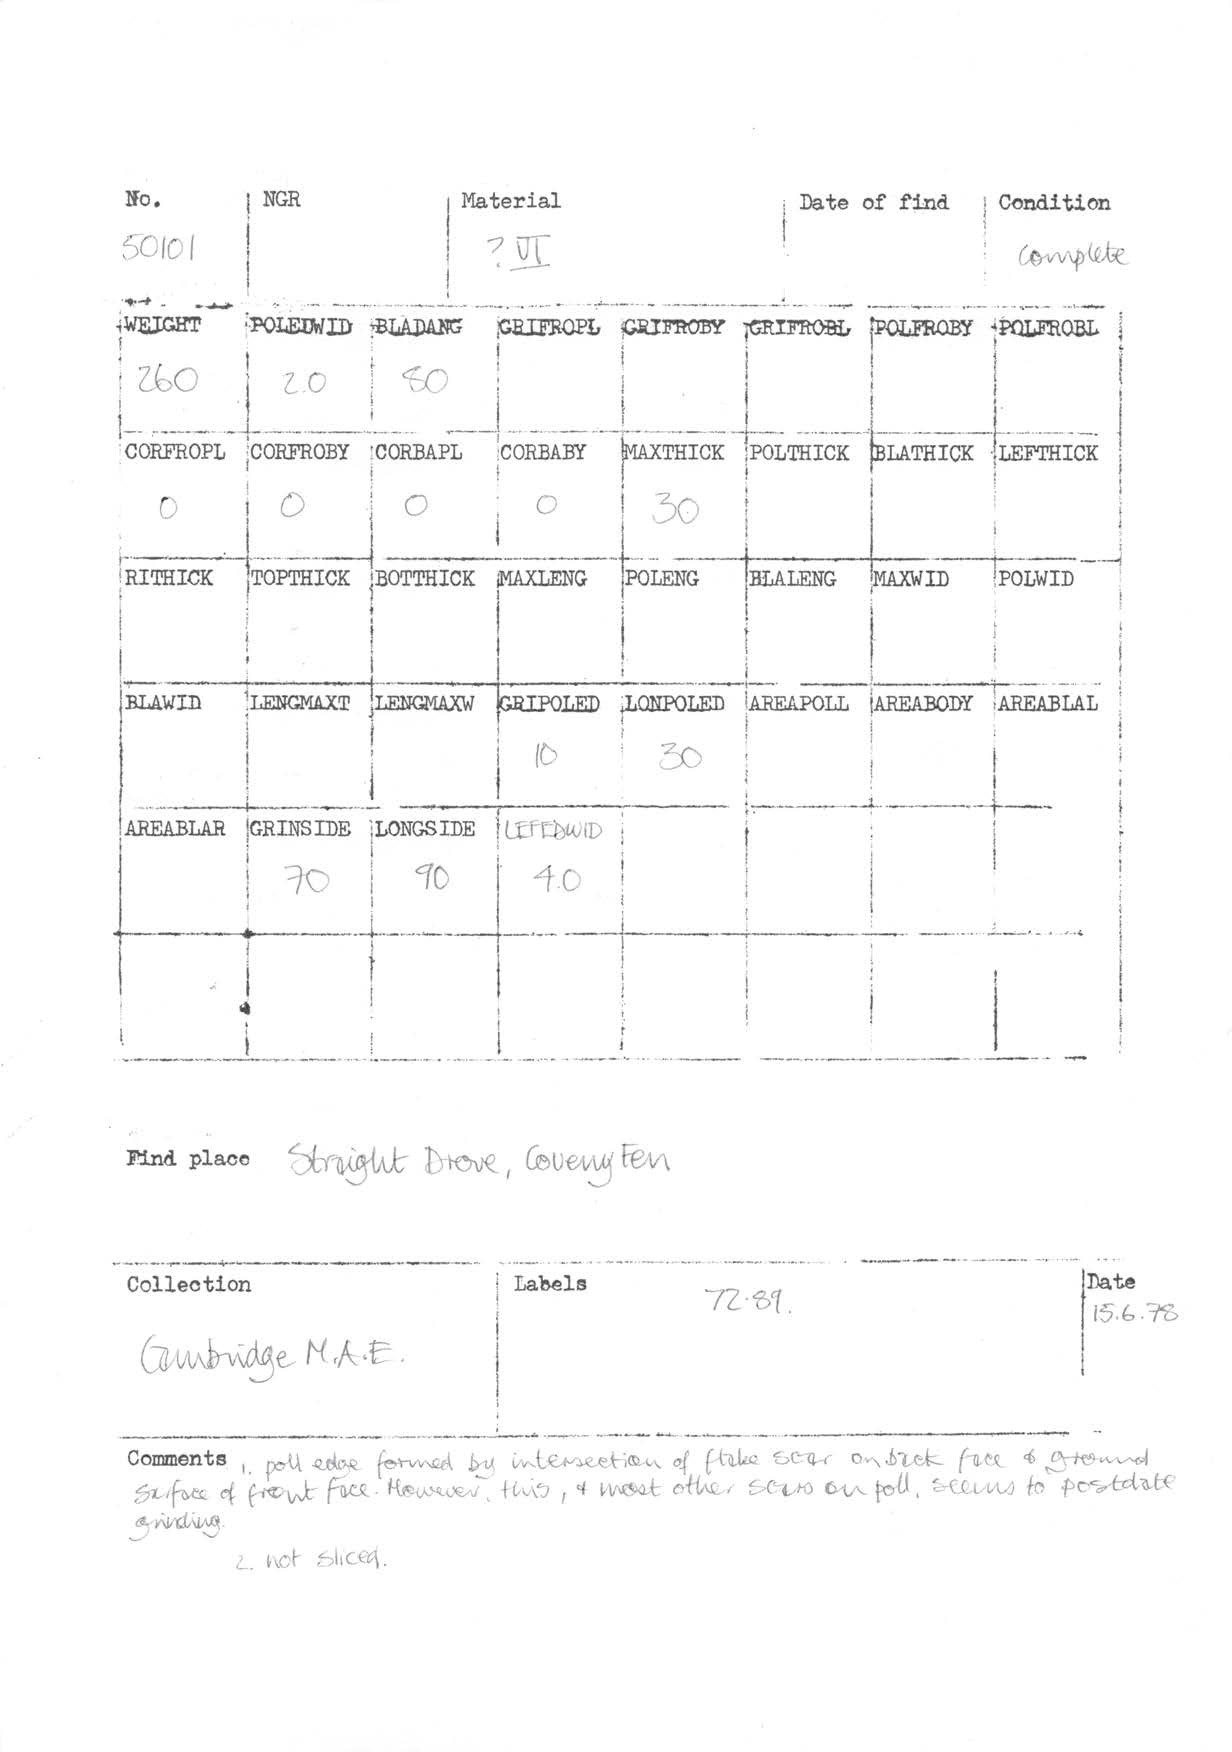 No. NGR Material Date of find Condition
50101 ? VI Complete
WEIGHT POLEDWID BLADANG GRIFROPL GRIFROBY GRIFROBL POLFROBY POLFROBL
260 2.0 80
CORFROPL CORFROBY CORBAPL CORBABY MAXTHICK POLTHICK BLATHICK LEFTHICK
0 0 0 0 30
RITHICK TOPTHICK BOTTHICK MAXLENG POLENG BLALENG MAXWID POLWID
BLAWID LENGMAXT LENGMAXW GRIPOLED LONPOLED AREAPOLL AREABODY AREABLAL
10 30
AREABLAR GRINSIDE LONGSIDE LEFEDWID
70 90 4.0
Find place Straight Drove, Coveny Fen
Collection Labels 72.89. Date
15.6.78
Cambridge M.A.E.
Comments 1. poll edge formed by intersection of flake scar on back face & ground
surface of front face. However, this, & most other scars on poll, seems to postdate
grinding.
2. not sliced.